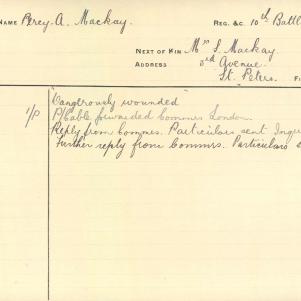 NAME Percy. A. Mackay. REG. &C. 10th Battl
NEXT OF KIN Mrs S. Mackay.
ADDRESS 3rd Avenue
St. Peters.
1/P "Dangerously wounded"
P/Cable forwarded Commrs London.
Reply from Commrs. Particulars sent Inqu
Further reply from Commrs. Particulars s